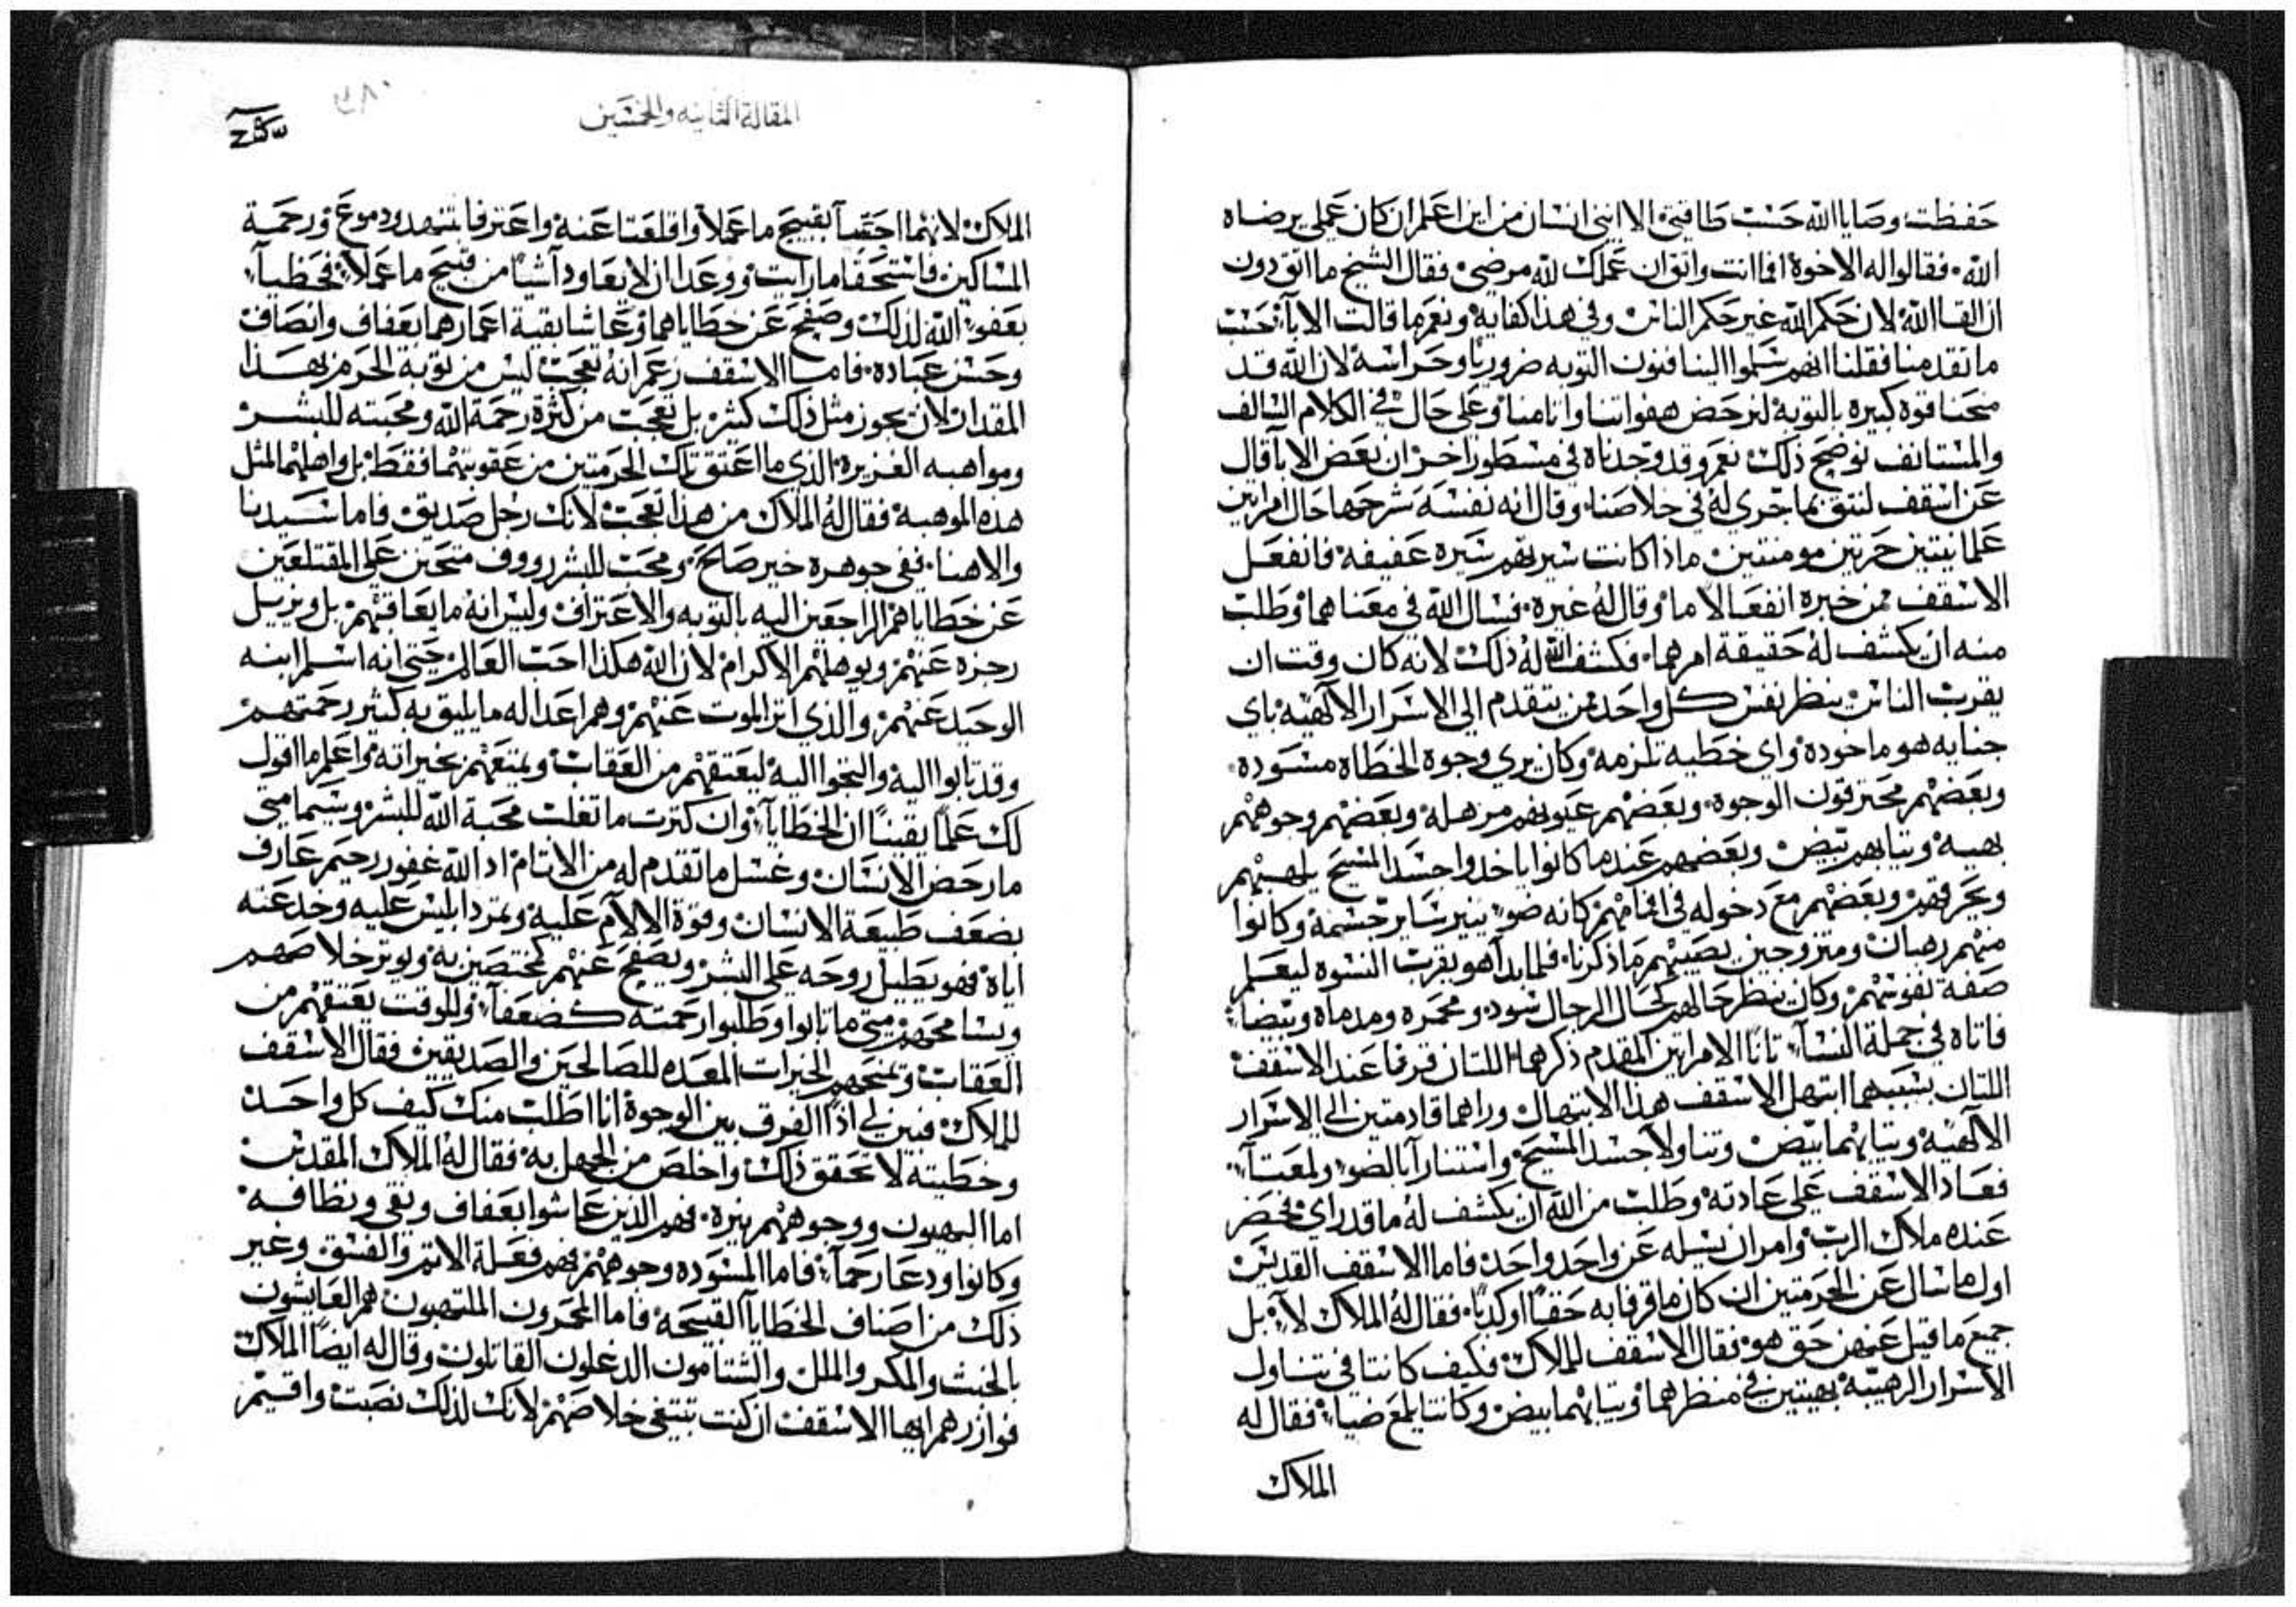 حفظت وصايا الله حسب طاقتي الا انني انسان من اين اعلم ان كان عملي يرضاه
الله. فقالوا له الاخوة افما انت واثق ان عملك لله مرضي فقال الشيخ ما اثق دون
ان القا الله لان حكم الله غير حكم الناس وفي هذا كفايه ونعم ما قالت الابآ حسب
ما تقدم منا فقلنا انهم سلموا الينا فنون التوبه ضروريًا وحراسة لان الله قد
منحنا قوه كبيره بالتوبة لنرحض هفواتنا واثامنا وعلى حال في الكلام السالف
والمستانف نوضح ذلك نعم وقد وجدناه في مسطور اخر ان بعض الابآ قال
عن اسقف لنثق بما جرى له في خلاصنا. وقال انه نفسه شرحها حال امراتين
علمانيتين حرتين مومنتين ماذا كانت سيرتهم سيره عفيفه فانفعل
الاسقف ممن خبره انفعالا ما وقال له غيره. فسال الله في معناهما وطلب
منه ان يكشف له حقيقة امرهما. فكشف الله له ذلك لانه كان وقت ان
يقرب الناس ينظر نفس كل واحد ممن يتقدم الى الاسرار الالهيه باي
جنايه هو ماخوده واي خطيه تلزمه وكان يرى وجوه الخطاه مسوده
وبعضهم محترقون الوجوه. وبعضهم عيونهم مرهله وبعضهم وجوههم
بهيه وثيابهم بيض وبعضهم عندما كانوا ياخدوا جسد المسيح يلهبهم
ويحرقهم وبعضهم مع دخوله في افمامهم كانه ضو ينير ساير جسمه وكانوا
منهم رهبان ومتزوجين يصيبهم ما ذكرنا. فلما بدا هو يقرب النسوه ليعلم
صفة نفوسهم وكان ينظر حالهم كحال الرجال سود ومحمره ومدماه وبيضا
فاتاه في جملة النسآ تانا الامراتين المقدم ذكرهما اللتان قرفا عند الاسقف
اللتان بسببهما ابتهل الاسقف هذا الابتهال وراهما قادمتين الى الاسرار
الالهيه وثيابهما بيض وتناولا جسد المسيح واستنارا بالضو ولمعتا
فعاد الاسقف على عادته وطلب من الله ان يكشف له ما قد راى فحضر
عنده ملاك الرب وامر ان يسله عن واحد واحد فاما الاسقف القديس
اول ما سال عن الحرمتين ان كان ما قرفا به حقًا او كدبًا. فقال له الملاك لا بل
جميع ما قيل عنهن حق هو فقال الاسقف للملاك فكيف كانتا في تناول
الاسرار الرهيبة بهيتين في منظرهما وثيابهما بيض وكانتا يلمع ضيا. فقال له
الملاك
المقالة الثانيه والخمسين
٣٨٠
الملاك لانهما احتسا بقبيح ما عملا واقلعتا عنه واعترفا بتنهد ودموع ورحمة
المساكين فاستحقا ما رايت ووعدا ان لا يعاودا شيًا من قبيح ما عملا فحظيا
بعفو الله لذلك وصفح عن خطاياهما وعاشا بقية اعمارهما بعفاف وانصاف
وحسن عباده. فاما الاسقف زعم انه تعجب ليس من توبة الحرم بهذا
المقدار لان يجوز مثل ذلك كثير بل تعجب من كثرة رحمة الله ومحبته للبشر
ومواهبه الغزيره الذي ما اعتق تلك الحرمتين من عقوبتهما فقط بل واهلهما لمثل
هذه الموهبة فقال له الملاك من هذا تعجب لانك رجل صديق فاما سيدنا
والاهنا. ففي جوهره خير صالح ومحب للبشر رووف متحنن على المقتلعين
عن خطاياهم الراجعين اليه بالتوبه والاعتراف وليس انه ما يعاقبهم بل ويزيل
رجزه عنهم ويوهلهم الاكرام لان الله هكذا احب العالم حتى انه اسلم ابنه
الوحيد عنهم والذي اثر الموت عنهم وهم اعدا له ما يليق به كثير رحمتهم
وقد تابوا اليه والتجوا اليه ليعتقهم من العقاب ويمتعهم بخيراته واعلم ما اقول
لك علمًا يقينًا ان الخطايا وان كثرت ما تغلب محبة الله للبشر وسيما متى
ما رحض الانسان وغسل ما تقدم له من الاثام اد الله غفور رحيم عارف
بضعف طبيعة الانسان وقوة الالام عليه وتمرد ابليس عليه وخدعنه
اياه فهو يطيل روحه على البشر ويصفح عنهم كمختصين به ويوثر خلاصهم
ويسامحهم متى ما تابوا وطلبوا رحمته كضعفا وللوقت يعتقهم من
العقاب ويمنحهم الخيرات المعده للصالحين والصديقين فقال الاسقف
للملاك فبين لي اذًا الفرق بين الوجوه انا اطلب منك كيف كل واحد
وخطيته لا تحقق ذلك واخلص من الجهل به فقال له الملاك المقدس
اما البهيون ووجوههم نيره. فهم الذين عاشوا بعفاف ونقي ونظافه
وكانوا ودعا رحما. فاما المسوده وجوههم فهم فعلة الاثم والفسق وغير
ذلك من اصناف الخطايا القبيحة فاما المحمرون الملتهبون هم العايشون
بالخبث والمكر والملل والشتامون الدغلون القاتلون وقال له ايضًا الملاك
فوازرهم ايها الاسقف ان كنت تبتغي خلاصهم لانك لذلك نصبت واقيم